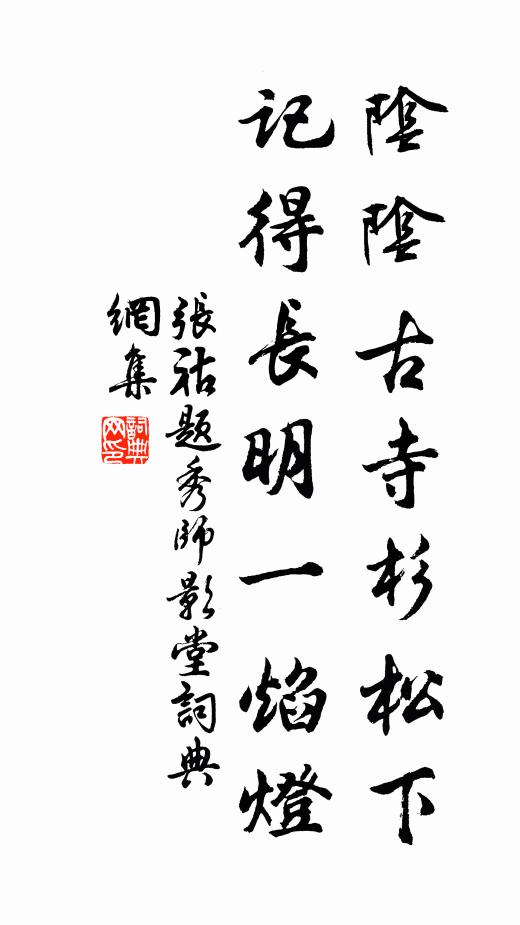 陰陰古寺杉松下
記得長明一焰燈
張祜題秀師影堂詞典
網集
詞典網印